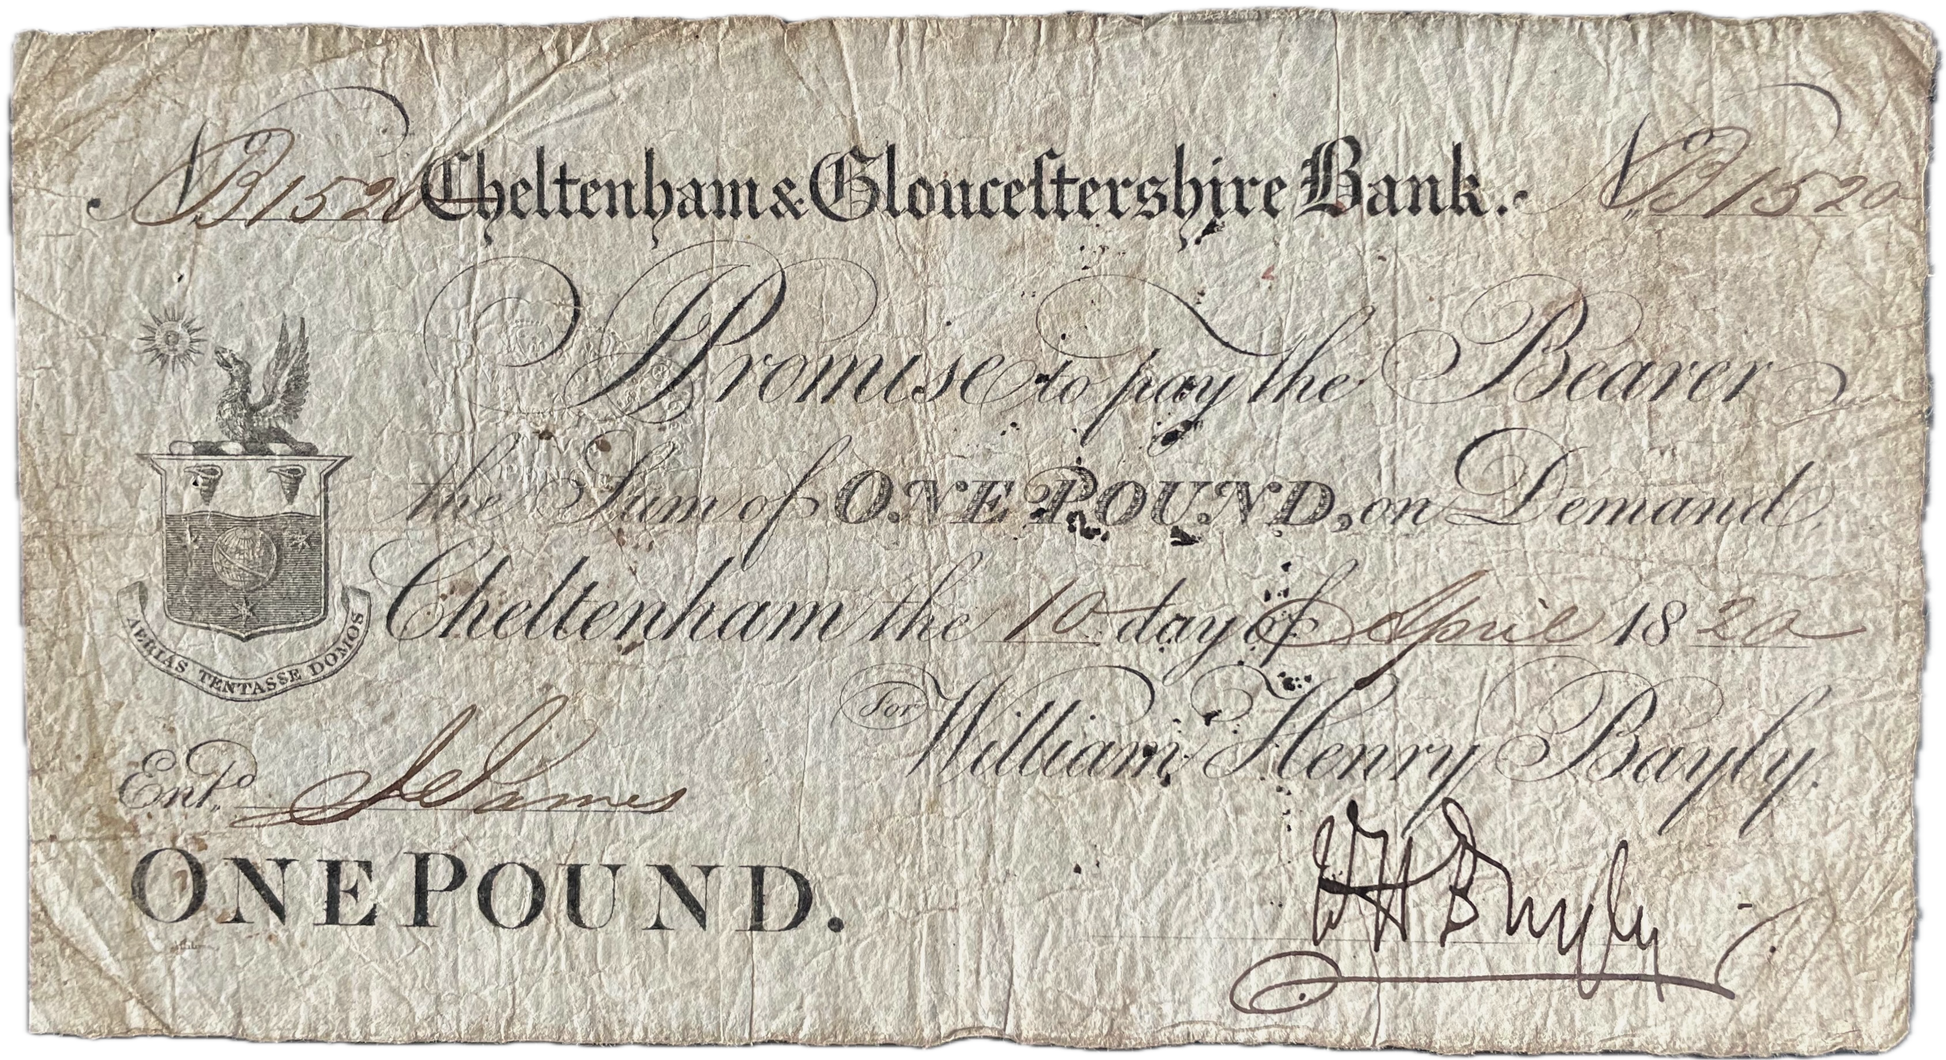 No B1520 Cheltenham & Glouceſterſhire Bank. No B1520
I Promise to pay the Bearer
the Sum of ONE POUND, on Demand
Cheltenham the 10 day of April 1820
For William Henry Bayly.
AERIAS TENTASSE DOMOS
Entd. James
ONE POUND.
WH Bayly